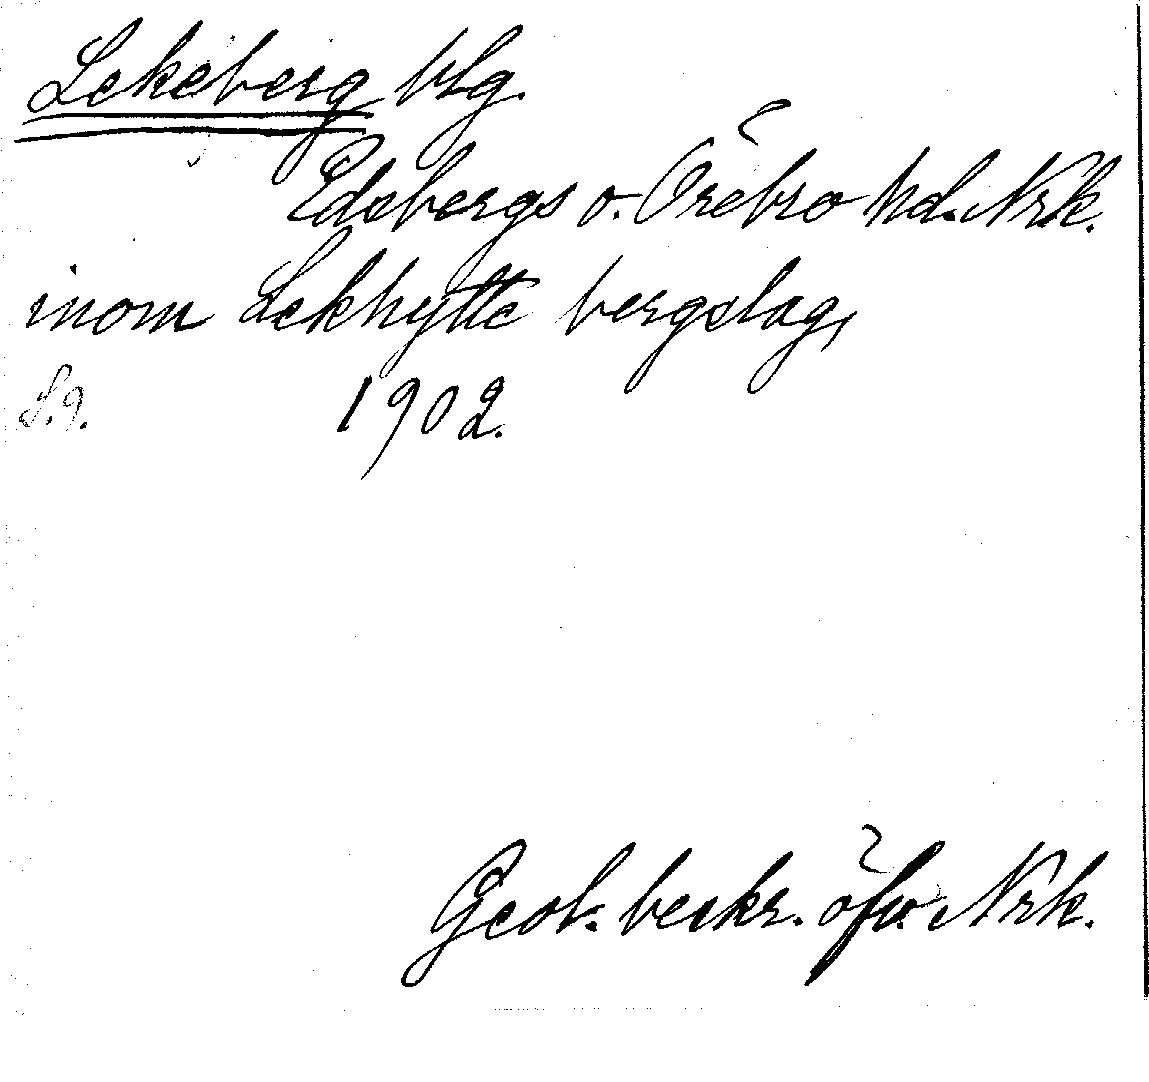 Lekeberg blg.
Edsbergs o. Örebro hd. Nrk.
inom Lekhytte bergslag,
S. 9. 1902.
Geol. beskr. öfv. Nrk.